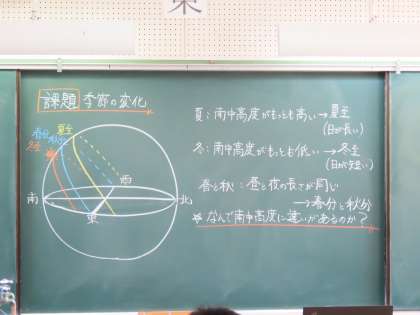 東
課題 季節の変化
夏：南中高度がもっとも高い→夏至
(日が長い)
冬：南中高度がもっとも低い→冬至
(日が短い)
春と秋：昼と夜の長さが同じ
→春分と秋分
☆なんで南中高度に違いがあるのか?
夏至
春分
秋分
冬至
西
南
北
東